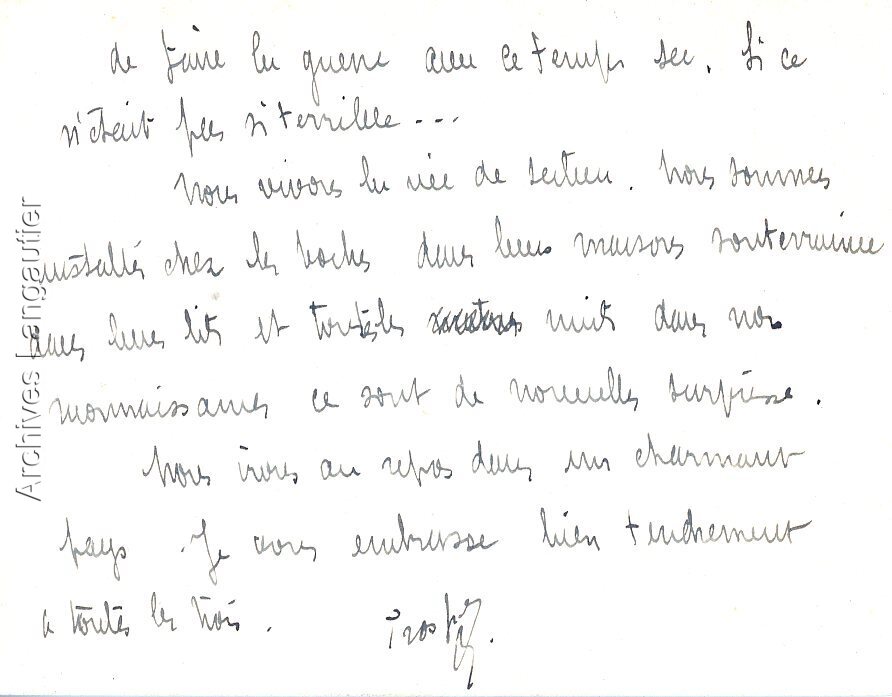 de faire la guerre avec ce temps sec. Si ce
n'était pas si terrible...
Nous vivons la vie de secteur. Nous sommes
installés chez les boches dans leurs maisons souterraines
dans leurs lits et toutes les nuits dans nos
ce sont de nouvelles surprises.
Nous irons au repos dans un charmant
pays. Je vous embrasse bien tendrement
a toutes les trois. Prosper.
Archives Langautier